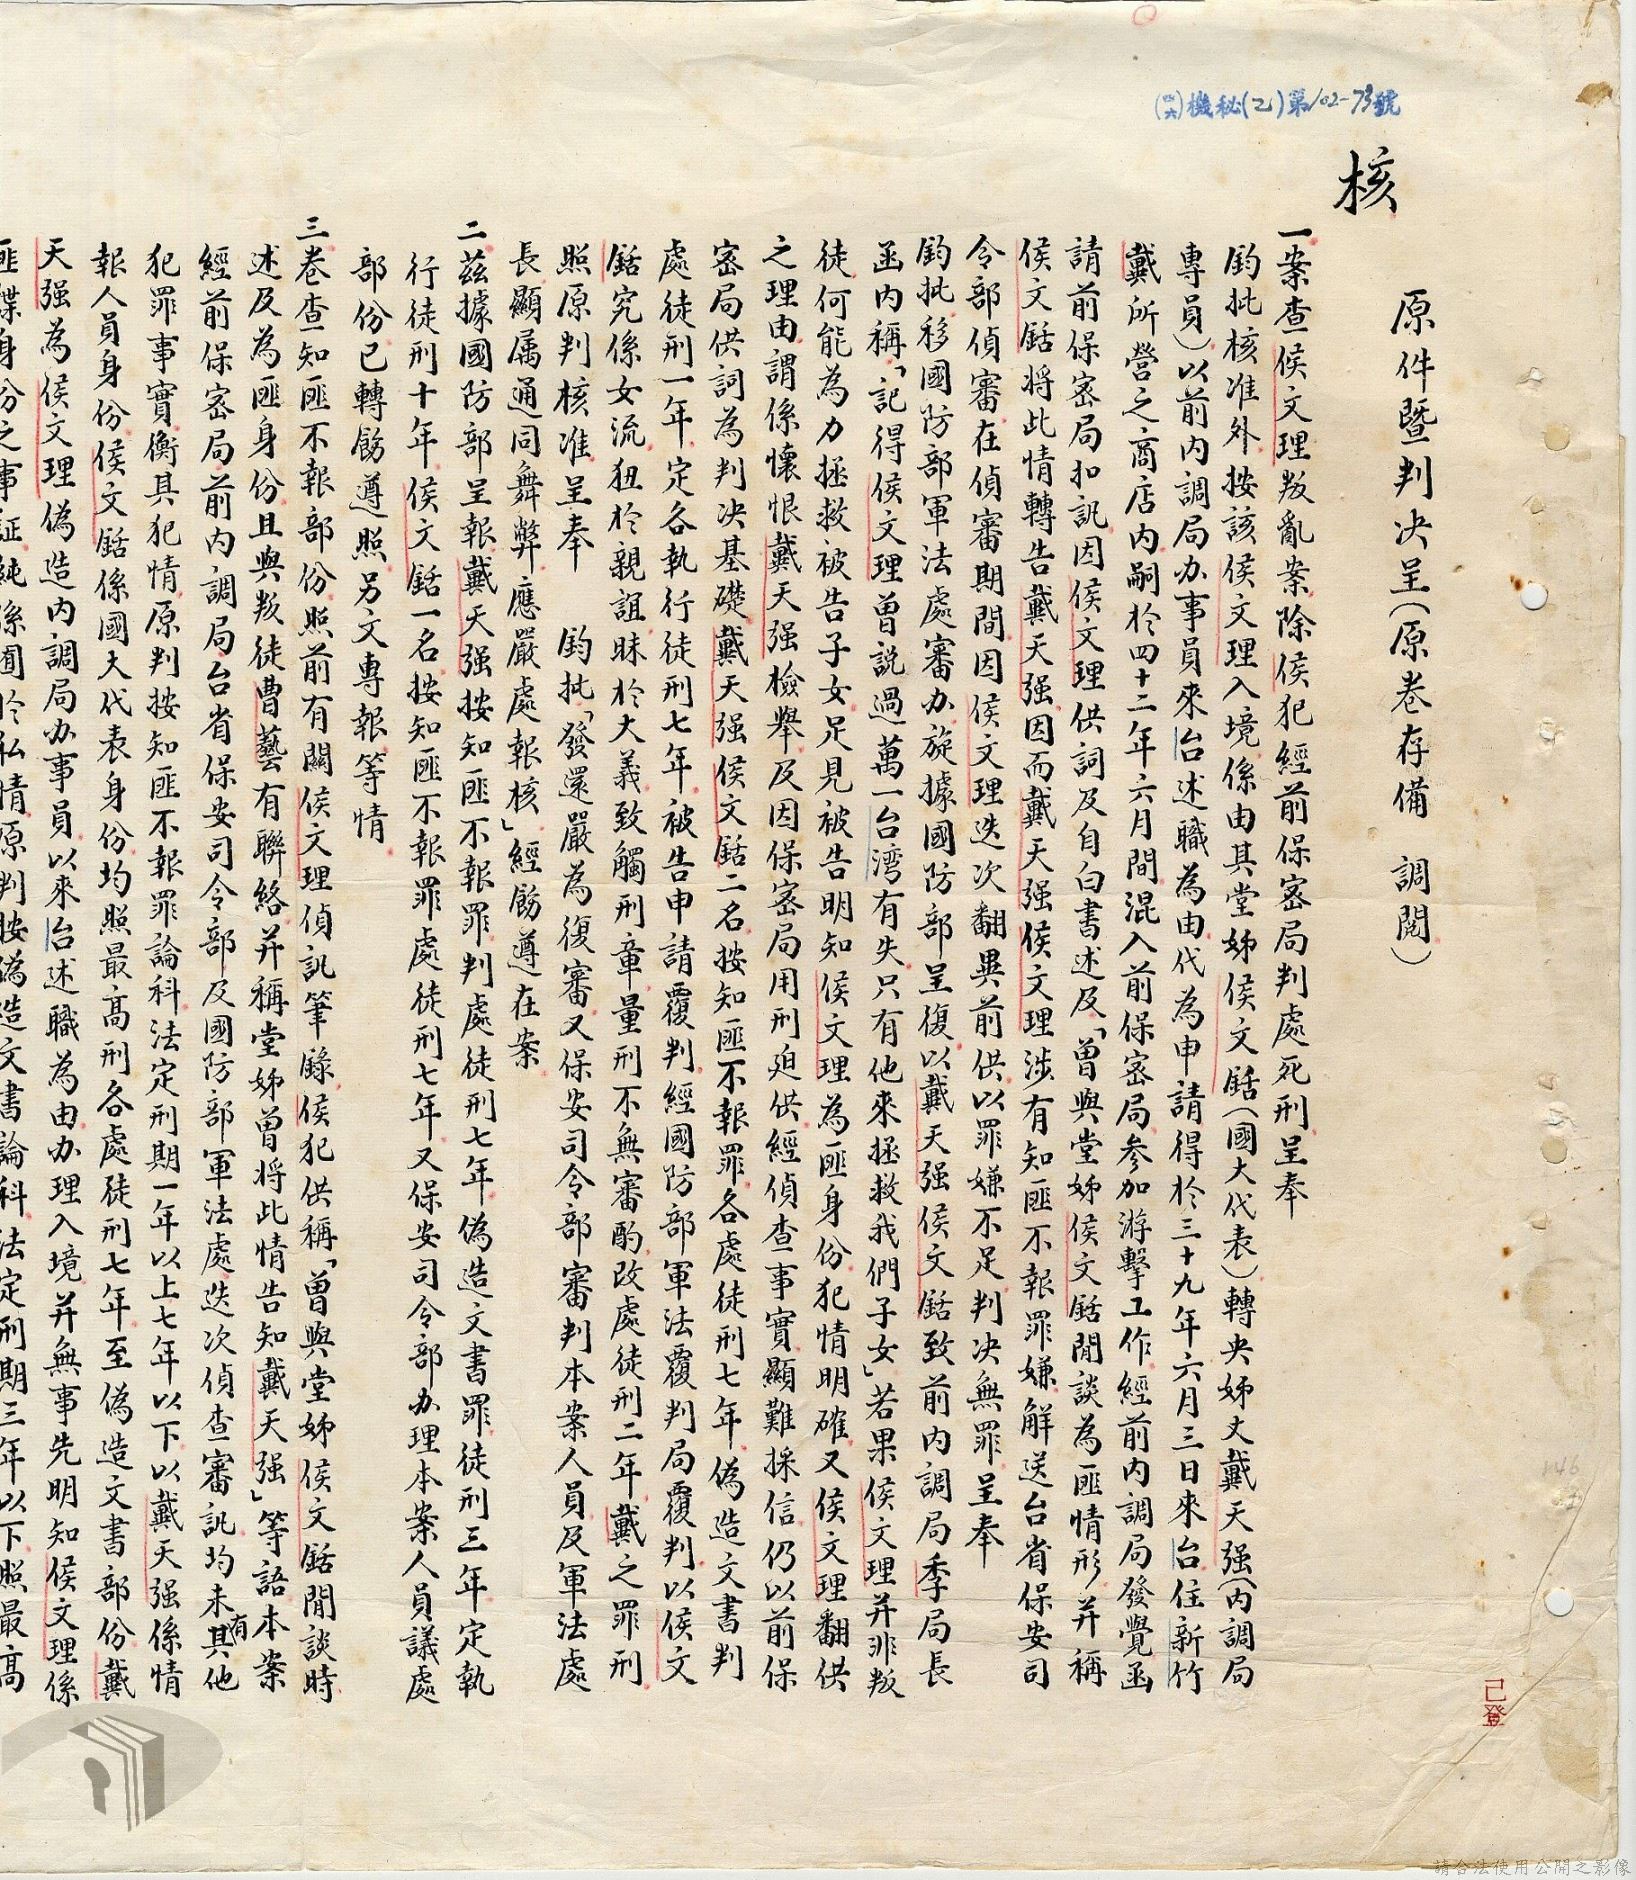 (四六)機秘(乙)第102-73號
核
原件暨判决呈(原卷存備 調閱)
一案查侯文理叛亂案除侯犯經前保密局判處死刑呈奉
鈞批核准外按該侯文理入境係由其堂姊侯文𨧱(國大代表)轉央姊丈戴天强(内調局
專員)以前内調局办事員來台述職為由代為申請得於三十九年六月三日來台住新竹
戴所營之商店内嗣於四十二年六月間混入前保密局参加游擊工作經前内調局發覺函
請前保密局扣訊因侯文理供詞及自白書述及「曾與堂姊侯文𨧱閒談為匪情形并稱
侯文𨧱将此情轉告戴天强因而戴天强侯文理涉有知匪不報罪嫌解送台省保安司
令部偵審在偵審期間因侯文理迭次翻異前供以罪嫌不足判决無罪呈奉
鈞批移國防部軍法處審办旋據國防部呈復以戴天强侯文𨧱致前内調局季局長
函内稱「記得侯文理曾説過萬一台湾有失只有他來拯救我們子女」若果侯文理并非叛
徒何能為力拯救被告子女足見被告明知侯文理為匪身份犯情明確又侯文理翻供
之理由謂係懷恨戴天强檢舉及因保密局用刑迫供經偵查事實顯難採信仍以前保
密局供詞為判决基礎戴天强侯文𨧱二名按知匪不報罪各處徒刑七年偽造文書判
處徒刑一年定各執行徒刑七年被告申請覆判經國防部軍法覆判局覆判以侯文
𨧱究係女流狃於親誼昧於大義致觸刑章量刑不無審酌改處徒刑二年戴之罪刑
照原判核准呈奉 鈞批「發還嚴為復審又保安司令部審判本案人員及軍法處
長顯属通同舞弊應嚴處報核」經飭遵在案
二茲據國防部呈報戴天强按知匪不報罪判處徒刑七年偽造文書罪徒刑三年定執
行徒刑十年侯文𨧱一名按知匪不報罪處徒刑七年又保安司令部办理本案人員議處
部份已轉飭遵照另文專報等情
三卷查知匪不報部份照前有關侯文理偵訊筆錄侯犯供稱「曾與堂姊侯文𨧱閒談時
述及為匪身份且與叛徒曹藝有聯絡并稱堂姊曾将此情告知戴天强」等語本案
經前保密局前内調局台省保安司令部及國防部軍法處迭次偵查審訊均未有其他
犯罪事實衡其犯情原判按知匪不報罪論科法定刑期一年以上七年以下以戴天强係情
報人員身份侯文𨧱係國大代表身份均照最高刑各處徒刑七年至偽造文書部份戴
天强為侯文理偽造内調局办事員以來台述職為由办理入境并無事先明知侯文理係
匪諜身份之事証純係囿於私情原判按偽造文書論科法定刑期三年以下照最高
已登
請合法使用公開之影像